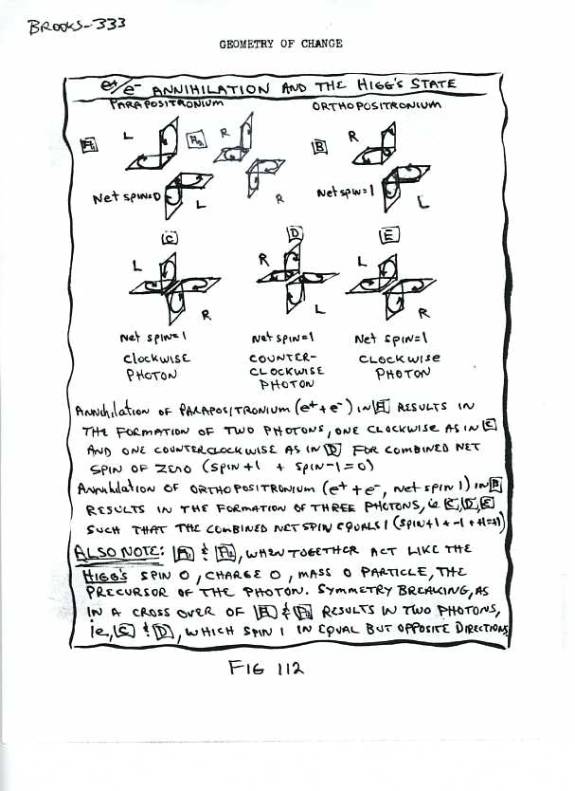 BROOKS-333
GEOMETRY OF CHANGE
e+/e- ANNIHILATION AND THE HIGG'S STATE
PARAPOSITRONIUM ORTHOPOSITRONIUM
L R R
B
Net spin=0 L R Net spin=1 L
C D E
L R L
R L R
Net spin=1 Net spin=1 Net spin=1
CLOCKWISE COUNTER- CLOCKWISE
PHOTON CLOCKWISE PHOTON
PHOTON
ANNihilATION OF PARAPOSITRONIUM (e+ + e-) IN A RESULTS IN
THE FORMATION OF TWO PHOTONS, ONE CLOCKWISE AS IN C
AND ONE COUNTERCLOCKWISE AS IN D FOR COMBINED NET
SPIN OF ZERO (SPIN +1 + SPIN -1 = 0)
ANNihilATION OF ORTHOPOSITRONIUM (e+ + e-, NET SPIN 1) IN B
RESULTS IN THE FORMATION OF THREE PHOTONS, ie C, D, E
SUCH THAT THE COMBINED NET SPIN EQUALS 1 (SPIN +1 + -1 + +1 = +1)
ALSO NOTE: A1 & A2, WHEN TOGETHER ACT LIKE THE
HIGG'S SPIN 0, CHARGE 0, MASS 0 PARTICLE, THE
PRECURSOR OF THE PHOTON. SYMMETRY BREAKING, AS
IN A CROSS OVER OF A1 & A2 RESULTS IN TWO PHOTONS,
ie, C & D, WHICH SPIN 1 IN EQUAL BUT OPPOSITE DIRECTIONS
FIG 112